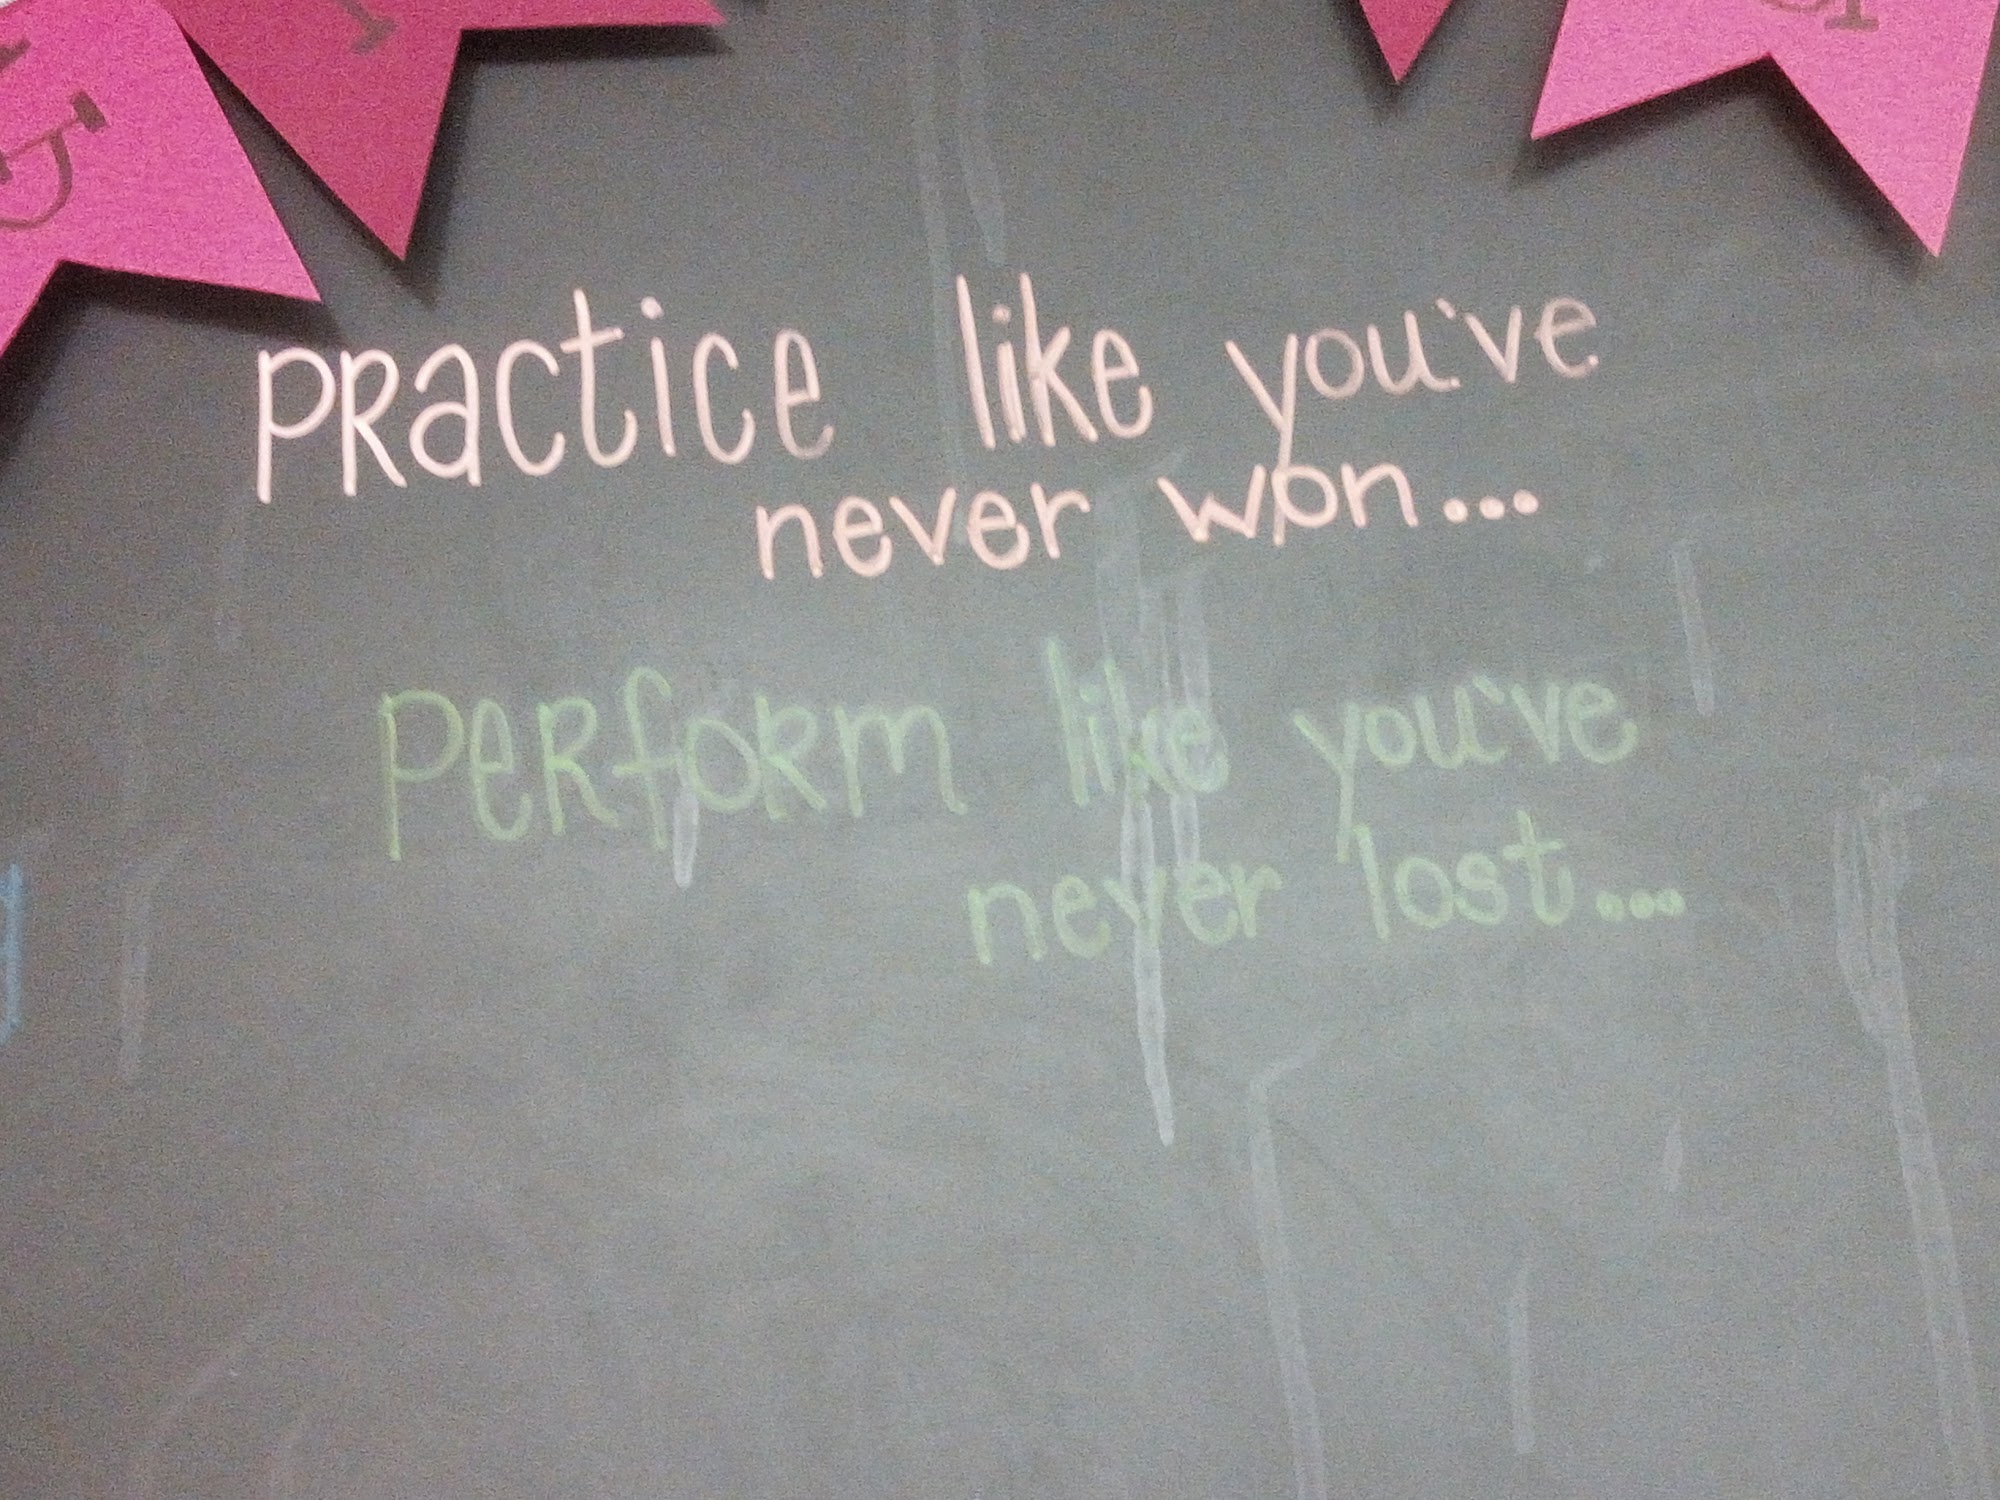 Practice like you've
never won...
Perform like you've
never lost...